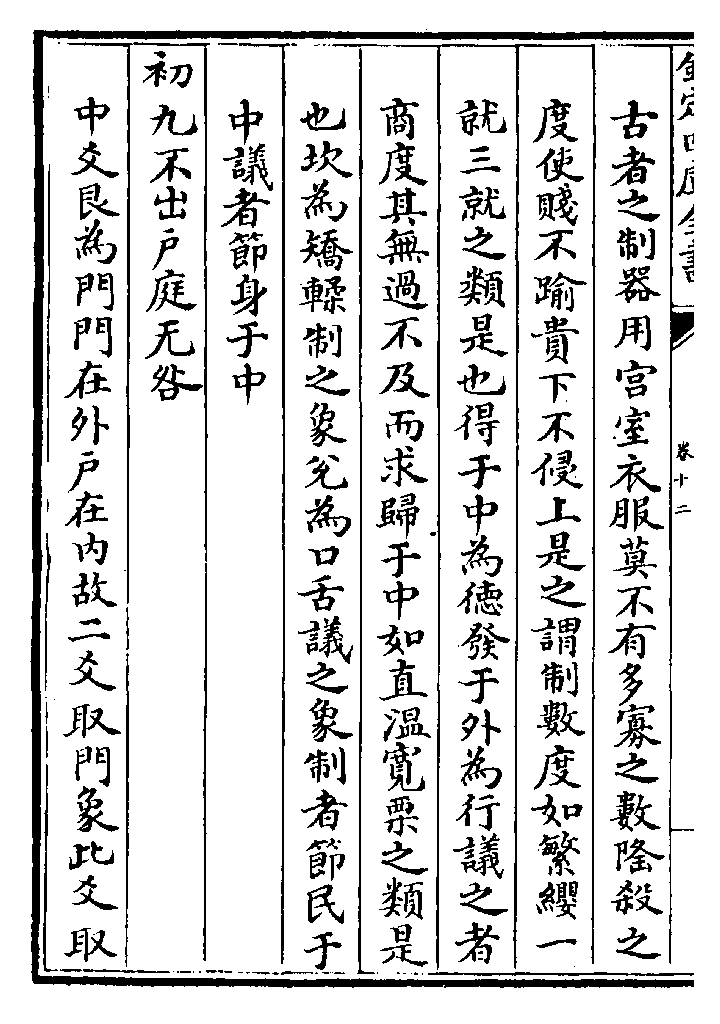 欽定四庫全書
卷十二
古者之制器用宫室衣服莫不有多寡之數隆殺之
度使賤不踰貴下不侵上是之謂制數度如繁纓一
就三就之類是也得于中為徳發于外為行議之者
商度其無過不及而求歸于中如直温寛栗之類是
也坎為矯輮制之象兌為口舌議之象制者節民于
中議者節身于中
初九不出戶庭无咎
中爻艮為門門在外戶在内故二爻取門象此爻取